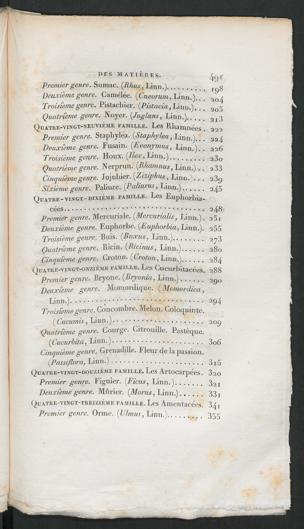 DES MATIÈRES. 491
Premier genre. Sumac. (Rhus, Linn.).......... 198
Deuxième genre. Camelée. (Cneorum, Linn.)... 204
Troisième genre. Pistachier. (Pistacia, Linn.)... 205
Quatrième genre. Noyer. (Juglans, Linn.)..... 213
QUATRE-VINGT-NEUVIÈME FAMILLE. Les Rhamnées. 222
Premier genre. Staphyléa. (Staphylea, Linn.)... 224
Deuxième genre. Fusain. (Evonymus, Linn.)... 226
Troisième genre. Houx. (Ilex, Linn.)........ 230
Quatrième genre. Nerprun. (Rhamnus, Linn.). 233
Cinquième genre. Jujubier. (Ziziphus, Linn.).. 239
Sixième genre. Paliure. (Paliurus, Linn.)..... 245
QUATRE-VINGT-DIXIÈME FAMILLE. Les Euphorbia-
cées.................................. 248
Premier genre. Mercuriale. (Mercurialis, Linn.). 251
Deuxième genre. Euphorbe. (Euphorbia, Linn.). 255
Troisième genre. Buis. (Buxus, Linn.)....... 273
Quatrième genre. Ricin. (Ricinus, Linn.)...... 280
Cinquième genre. Croton. (Croton, Linn.)..... 284
QUATRE-VINGT-ONZIÈME FAMILLE. Les Cucurbitacées. 288
Premier genre. Bryone. (Bryonia, Linn.)..... 290
Deuxième genre. Momordique. (Momordica,
Linn.)............................... 294
Troisième genre. Concombre. Melon. Coloquinte.
(Cucumis, Linn.)..................... 299
Quatrième genre. Courge. Citrouille. Pastèque.
(Cucurbita, Linn.)................... 306
Cinquième genre. Grenadille. Fleur de la passion.
(Passiflora, Linn.)................... 315
QUATRE-VINGT-DOUZIÈME FAMILLE. Les Artocarpées. 320
Premier genre. Figuier. (Ficus, Linn.)....... 321
Deuxième genre. Mûrier. (Morus, Linn.)..... 331
QUATRE-VINGT-TREIZIÈME FAMILLE. Les Amentacées. 341
Premier genre. Orme. (Ulmus, Linn.)........ 355